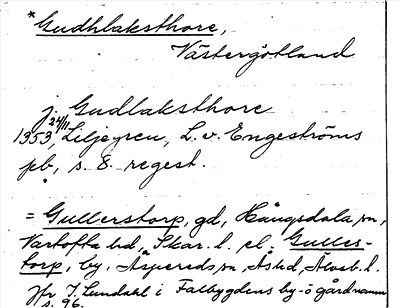 *Gudhlaksthore,
Västergötland
j Gudlaksthore
24/11
1353, Liljegren, L. v. Engeströms
pb, s. 8 regest.
= Gullerstorp, gd, Hångsdala sn,
Vartofta hd, Skar. l. el. Gulles-
torp, by, Äspereds sn, Ås hd, Älvsb. l.
Jfr I. Lundahl i Falbygdens by- o gårdnamn
s. 96.